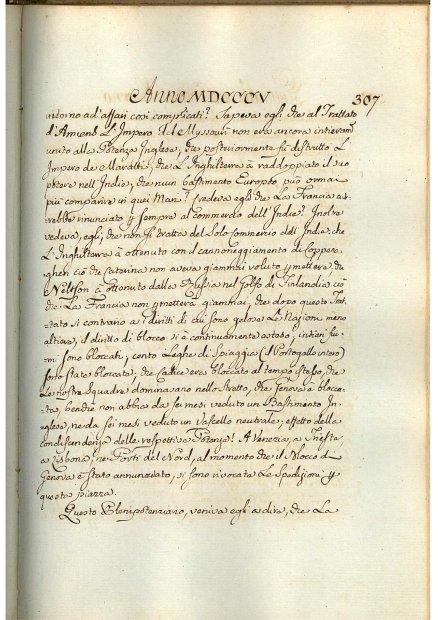 Anno MDCCCV
307
intorno ad'affari così complicati? Sapeva egli che al Trattato
d'Amiens L'Impero del Myssour non era ancora intieram.
unito alla Potenza Inglesa, che posteriormente fu distrutto L'
Impero de Maratti; che L'Inghilterra à raddoppiato il suo
potere nell'Indie; che niun bastimento Europeo può ormai
più comparire in quei Mari? Credeva egli che La Francia av-
rebbe rinunciato p sempre al commercio dell'Indie? Inoltre
vedeva, egli, che non si tratta del Solo Commercio dell'Indie; che
L'Inghilterra à ottenuto con il cannoneggiamento di Coppena-
ghen ciò che Caterina non aveva giammai voluto pmettere, che
Nelson à ottenuto dalla Russia nel Golfo di Finlandia ciò
che La Francia non pmetterà giammai; che dopo questo Trat-
tato sì contrario a i diritti di cui sono gelose Le Nazioni meno
altiere, il diritto di blocco si è continuamente esteso, intieri fiu-
mi sono bloccati, cento Leghe di Spiaggia (il Portogallo intero)
sono state bloccate; che Cadice era bloccato al tempo stesso, che
Le nostre Squadre dominavano nello Stretto, che Genova è blocca-
ta, benchè non abbia da sei mesi veduto un Bastimento In-
glese, ne da sei mesi veduto un Vascello neutrale, effetto della
condiscendenza delle respettive Potenze! A Venezia, a Trieste,
a Lisbona, ne Porti del Nord, al momento che il Blocco di
Genova è stato annunziato, si sono rivocate Le Spedizioni p
questa piazza.
Questo Plenipotenziario, veniva egli a dire, che La